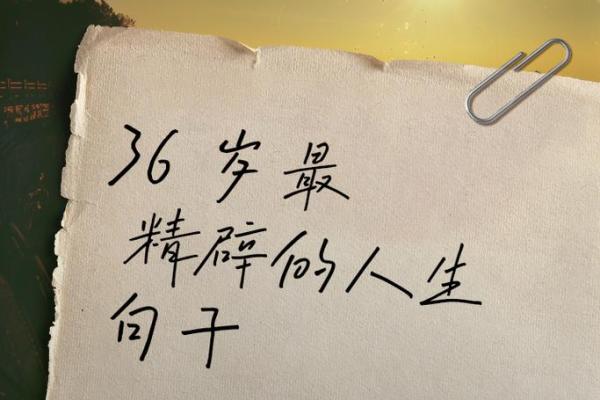 36岁最
精辟的人生
句子